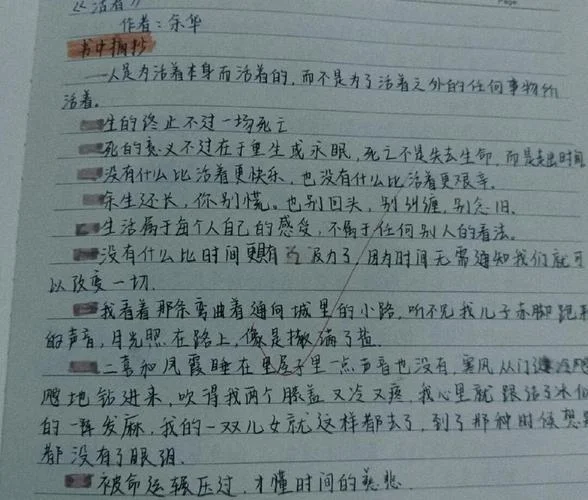 《活着》
作者：余华
书中摘抄
—人是为活着本身而活着的，而不是为了活着之外的任何事物所
活着。
生的终止不过一场死亡
死的意义不过在于重生或永眠，死亡不是失去生命，而是走出时间
没有什么比活着更快乐，也没有什么比活着更艰辛。
余生还长，你别慌。也别回头，别纠缠，别念旧。
生活属于每个人自己的感受，不属于任何别人的看法。
没有什么比时间更有 说服力了，因为时间无需通知我们就可
以改变一切.
我看着那条弯曲着通向城里的小路，听不见我儿子赤脚跑来
的声音，月光照在路上，像是撒满了盐.
二喜和凤霞睡在里屋子里一点声音也没有，寒风从门缝冷飕
飕地钻进来，吹得我两个膝盖又冷又疼，我心里就跟结了冰似
的一阵发麻，我的一双儿女就这样都去了，到了那种时候想哭
都没有了眼泪.
被命运辗压过，才懂时间的慈悲